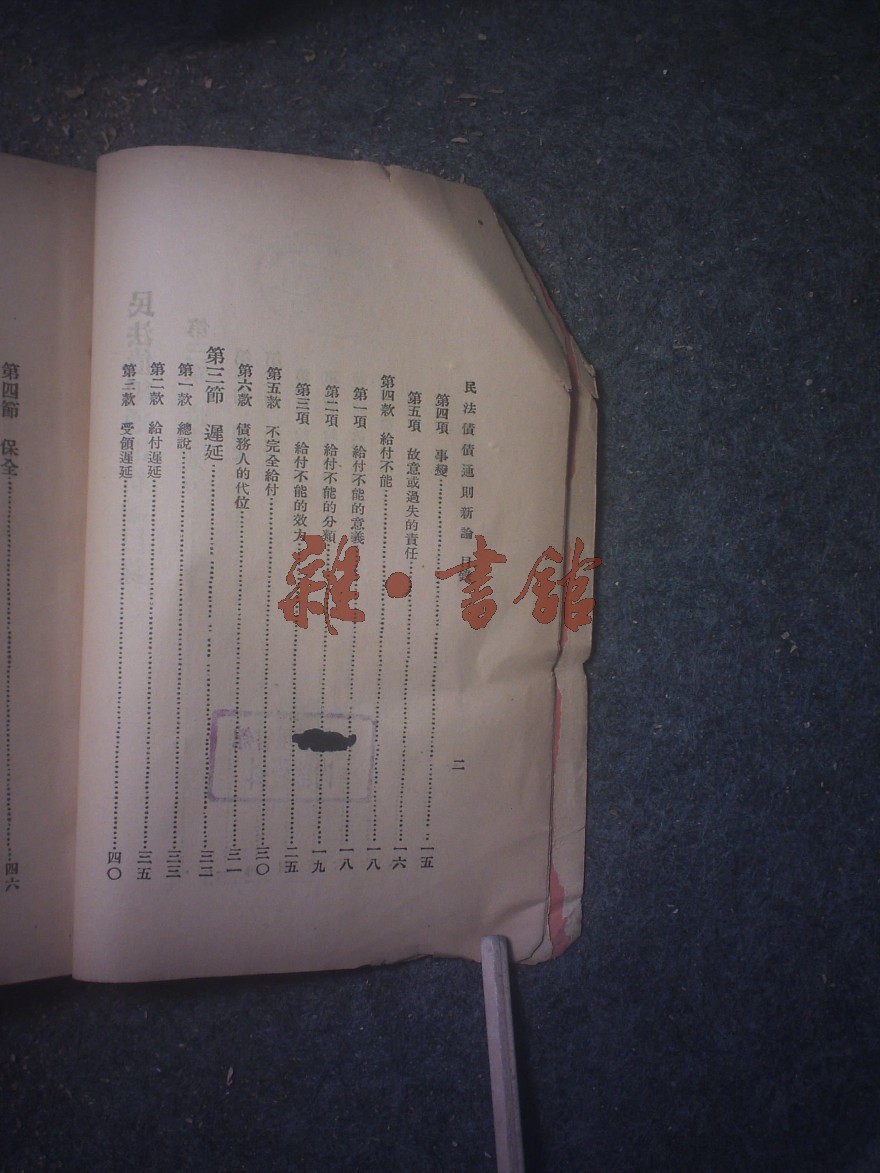 民法債債通則新論 目錄 二
第四項 事變 一五
第五項 故意或過失的責任 一六
第四款 給付不能 一八
第一項 給付不能的意義 一八
第二項 給付不能的分類 一九
第三項 給付不能的效力 二五
第五款 不完全給付 三〇
第六款 債務人的代位 三一
第三節 遲延 三二
第一款 總說 三三
第二款 給付遲延 三五
第三款 受領遲延 四〇
第四節 保全 四六
雜·書館